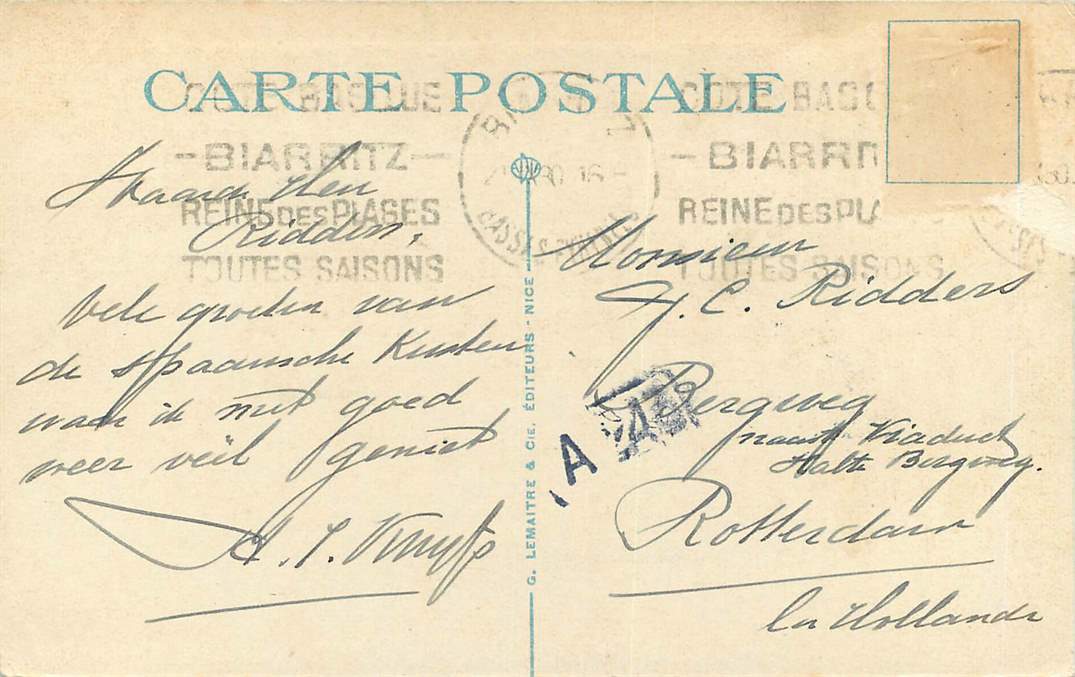 CARTE POSTALE
COTE BASQUE
- BIARRITZ -
REINE DES PLAGES
TOUTES SAISONS
COTE BASQ
- BIARRI
REINE DES PLA
TOUTES SAISONS
Ridders,
Vele groeten van
de Spaansche Kusten
waar ik met goed
weer veel geniet
G. LEMAITRE & CIE. ÉDITEURS - NICE -
Monsieur
J. C. Ridders
Bergweg
naast Viaduct
Halte Bergweg.
Rotterdam
en Hollande
A